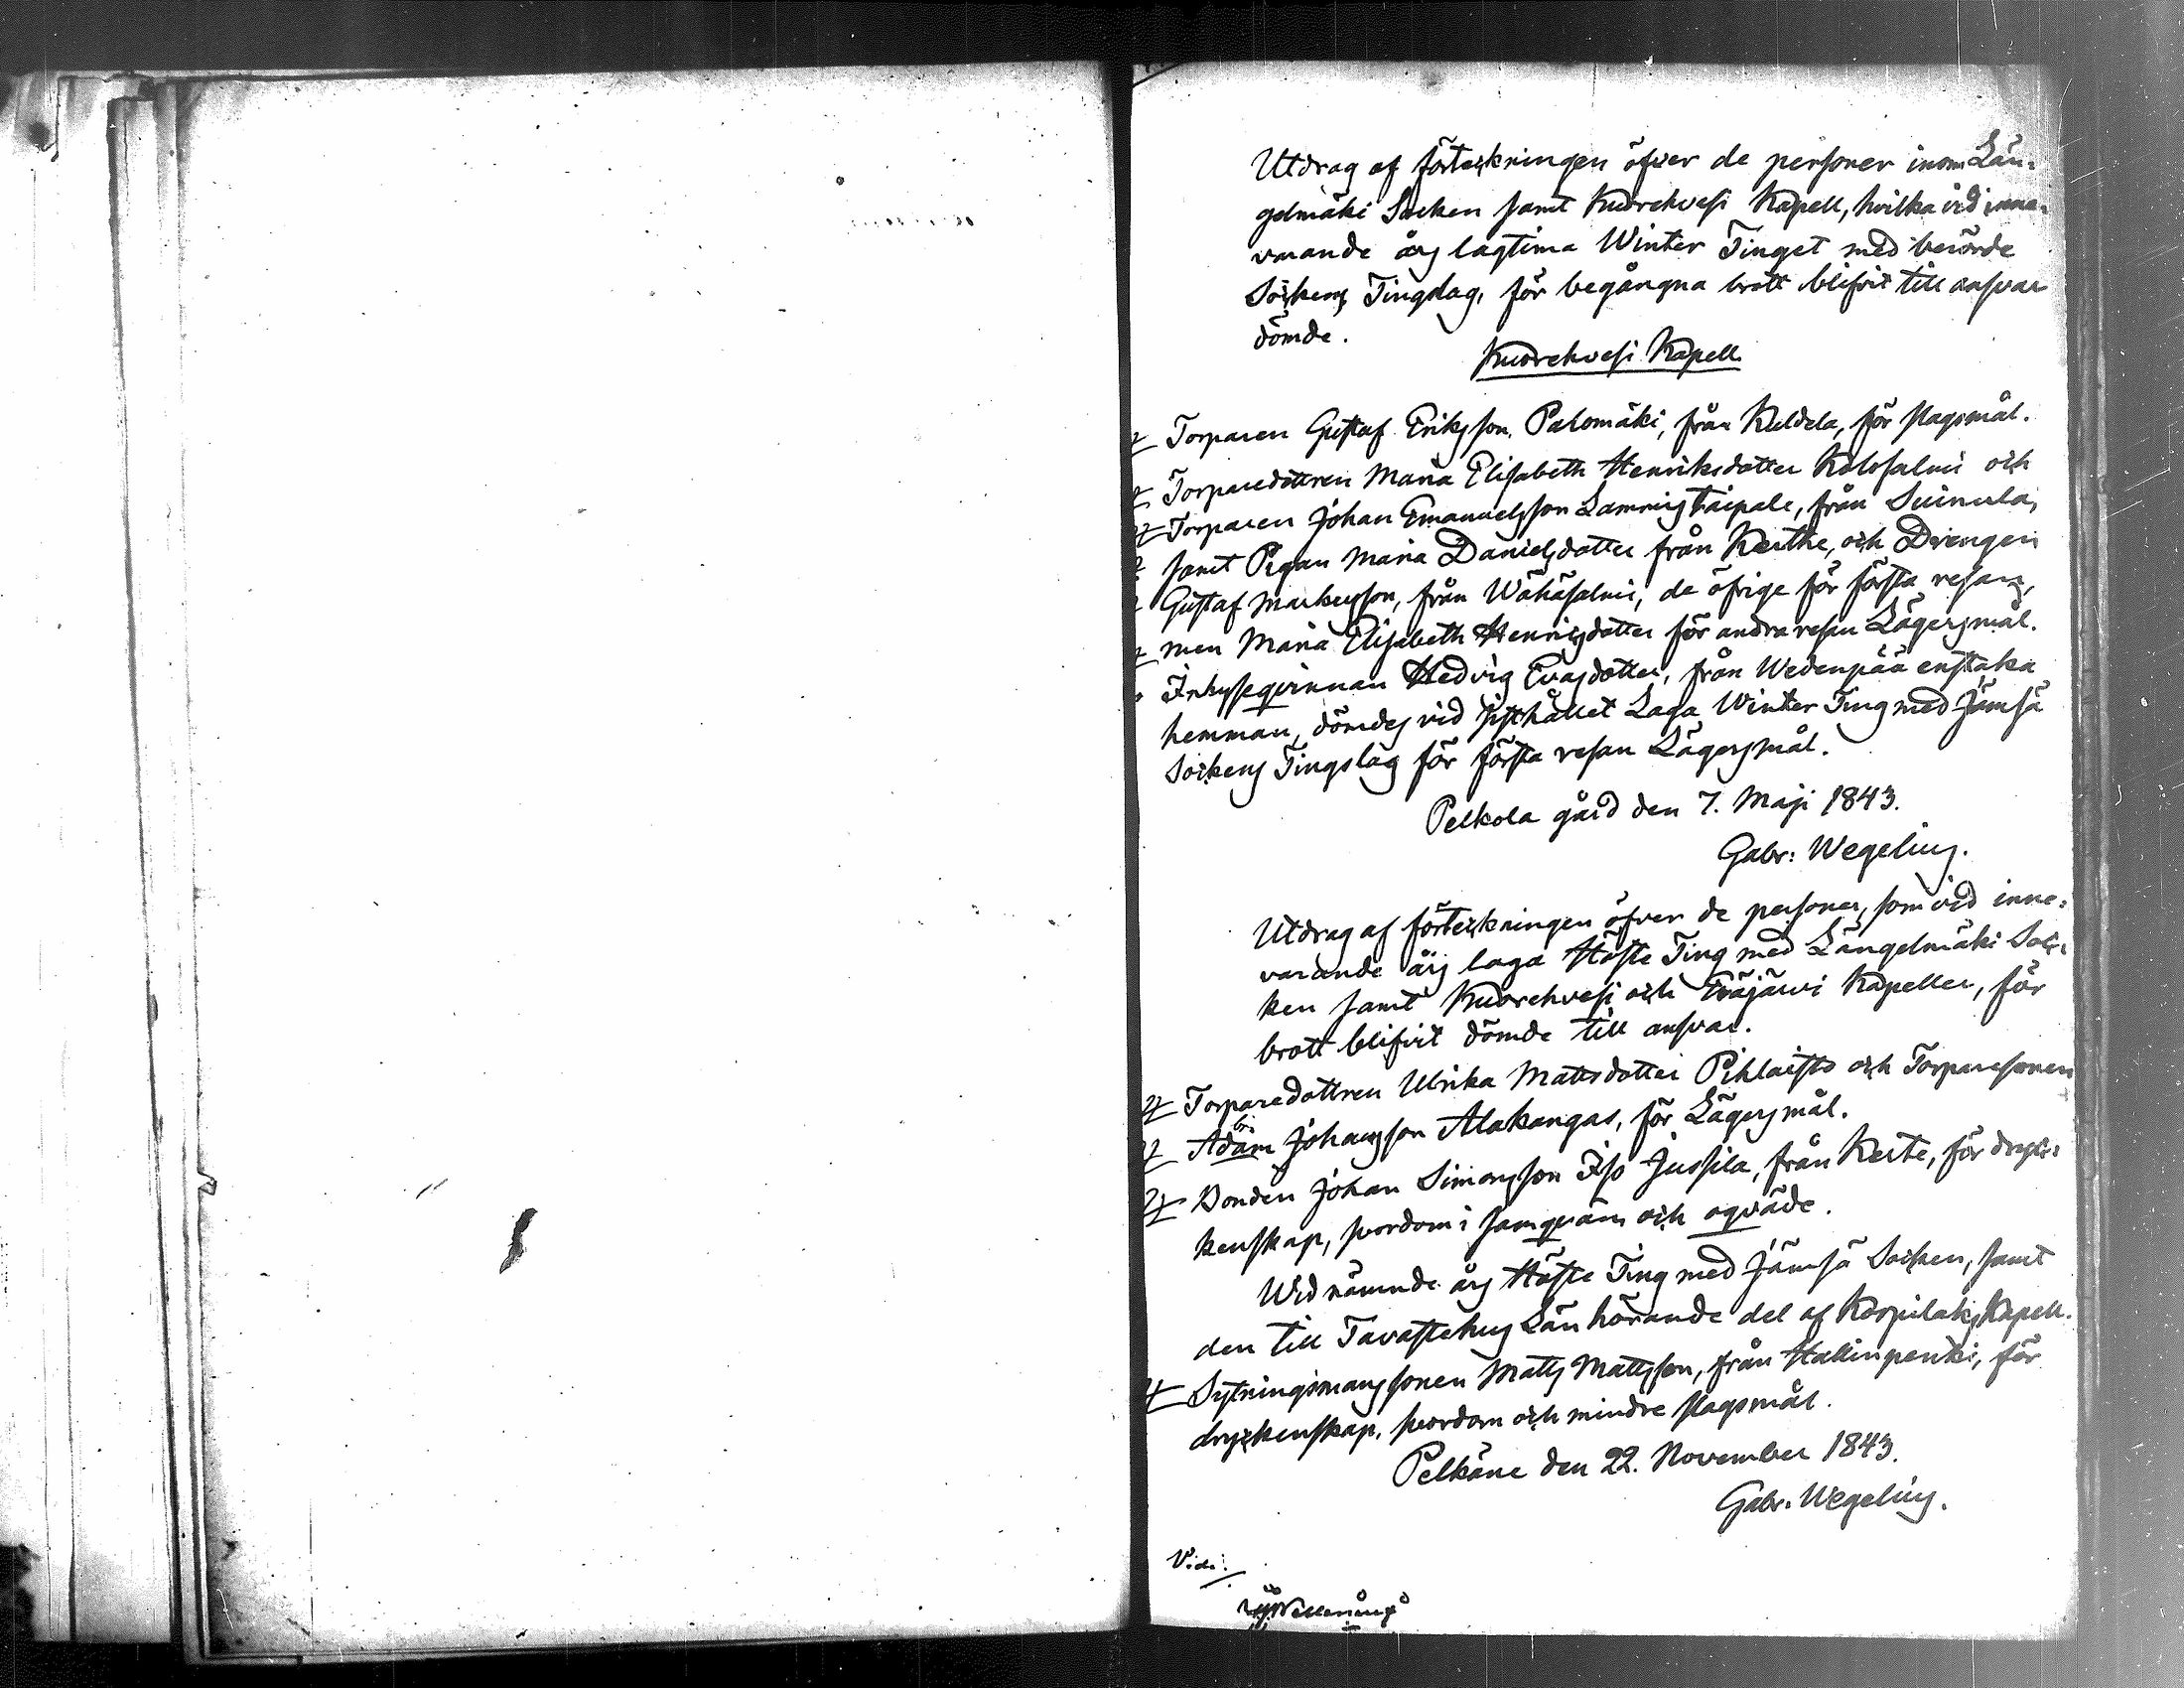 Utdrag af förteckningen öfver de personer inom Län-
gelmäki Socken samt Kuorehvesi Kapell, hvilka vid inne-
varande års lagtima Winter Tinget med berörde
Sockens Tingslag, för begångna brott blifvit till ansvar
dömde.
Kuorehvesi Kapell
Torparen Gustaf Eriksson Palomäki, från Kuldela, för slagsmål.
Torparedottren Maria Elisabeth Henriksdotter Kolosalmi och
Torparen Johan Emanuelsson Lammistaipale, från Suinula,
samt Pigan Maria Danielsdotter från Kertte, och Drengen
Gustaf Markusson, från Wähäsalmi, de öfrige för första resan,
men Maria Elisabeth Henricsdotter för andra resan Lägersmål.
Inhysesqvinnan Hedvig Evasdotter, från Wedenpää enstaka
hemman, dömdes vid sisthållet Laga Winter Ting med Jämsä
Sockens Tingslag för första resan Lägersmål.
Pelkola gård den 7. Maji 1843.
Gabr: Wegelius.
Utdrag af förteckningen öfver de personer, som vid inne-
varande års laga Höste Ting med Längelmäki Soc-
ken samt Kuorehvesi och Eräjärvi Kapeller, för
brott blifvit dömde till ansvar.
Torparedottren Ulrika Mattsdotter Pihlaisto och Torparesonen
Adam Johansson Alakangas, för Lägersmål.
Bonden Johan Simonsson Iso Jussila, från Kerte, för dryc-
kenskap, svordom i samqväm och oqväde.
Wid nämnde års Höste Ting med Jämsä Socken, samt
den till Tavastehus Län hörande del af Korpilaks Kapell.
Sytningsmanssonen Matts Mattsson, från Hallinpenki, för
dryckenskap, svordom och mindre slagsmål.
Pelkäne den 22. November 1843.
Gabr. Wegelius.
Vidi: